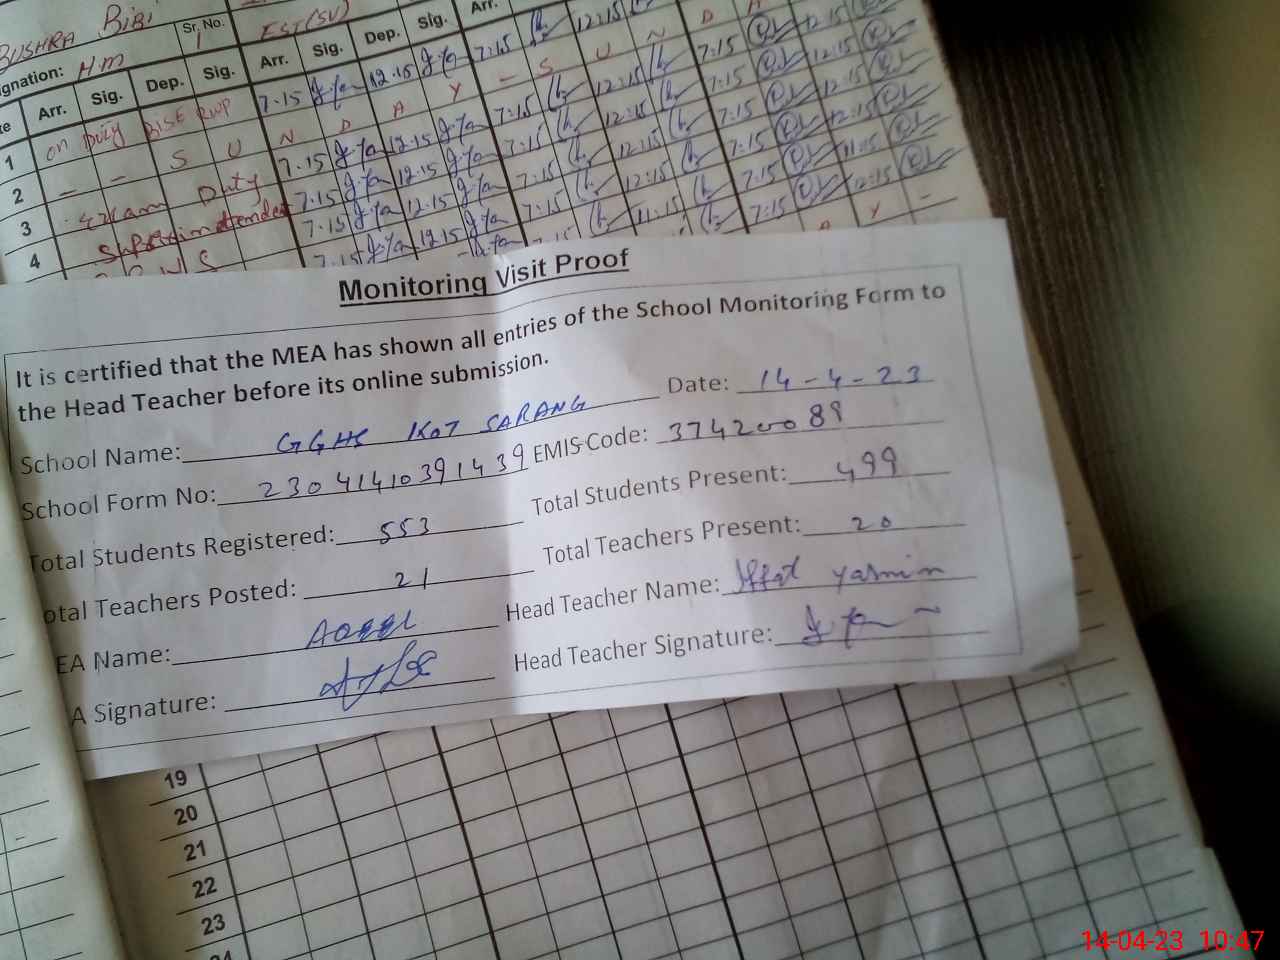 BUSHRA BIBI Sr. No. 1 EST(SV)
gnation: HM
Arr. Sig. Dep. Sig. Arr. Sig. Dep. Sig. Arr.
1 on Duty BISE RWP 7.15 12.15 7:15 12:15 7:15 12:15
2 - - S U N D A Y - S U N D A
3 Exam Duty 7.15 12.15 7:15 12:15 7:15 12:15
4 7.15 12.15 7:15 12:15 7:15 12:15
7.15 12.15 7:15 11:15 7:15 11:15
7.15 12.15 7:15 12:15
A Y -
Monitoring Visit Proof
It is certified that the MEA has shown all entries of the School Monitoring Form to
the Head Teacher before its online submission.
School Name: GGHS KOT SARANG Date: 14-4-23
School Form No: 23041410391439 EMIS Code: 37420089
Total Students Registered: 553 Total Students Present: 499
otal Teachers Posted: 21 Total Teachers Present: 20
EA Name: Head Teacher Name: Iffat Yasmin
A Signature: Head Teacher Signature:
19
20
21
22
23
24
14-04-23 10:47